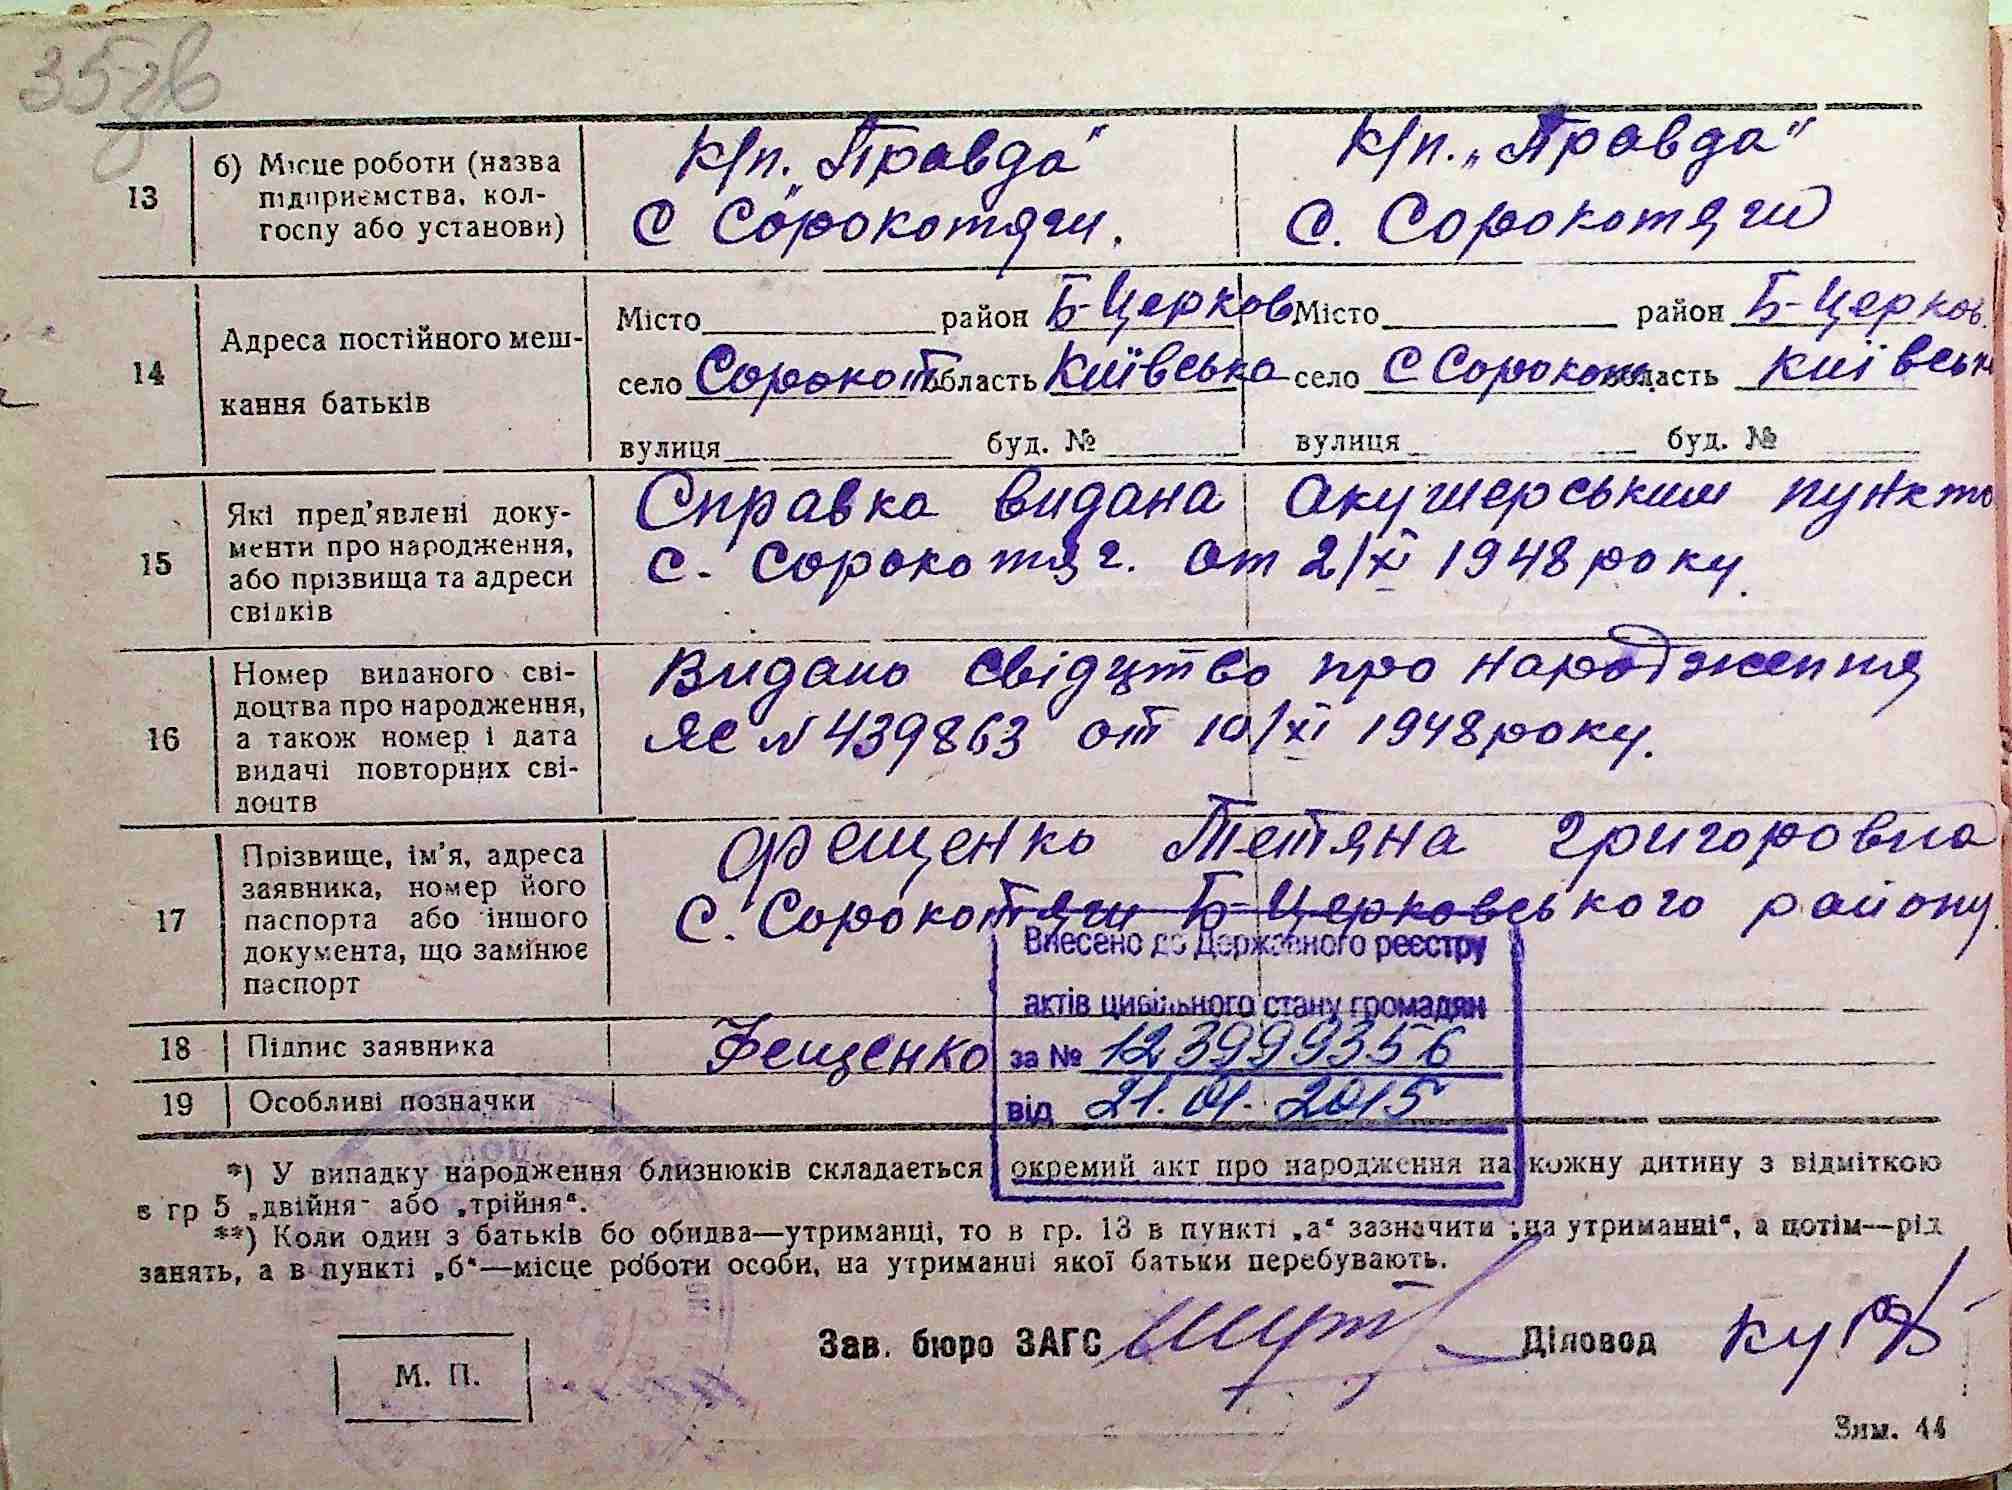 35зв
13
б) Місце роботи (назва
підприємства, кол-
госпу або установи)
К/п. „Правда“
С Сорокотяги.
К/п. „Правда“
С. Сорокотяги
14
Адреса постійного меш-
кання батьків
Місто район Б-Церков
село Сорокот область Київська
вулиця буд. №
Місто район Б-Церков.
село С Сорокот область Київськ
вулиця буд. №
15
Які пред’явлені доку-
менти про народження,
або прізвища та адреси
свідків
Справка видана акушерським пункто
С. Сорокотяг. от 2/XI 1948 року.
16
Номер виданого сві-
доцтва про народження,
а також номер і дата
видачі повторних сві-
доцтв
Видано свідцтво про народження
ЯС N 439863 от 10/XI 1948 року.
17
Прізвище, ім’я, адреса
заявника, номер його
паспорта або іншого
документа, що замінює
паспорт
Фещенко Тетяна Григоровна
С. Сорокотяги Б-Церковського району.
Внесено до Державного реєстру
актів цивільного стану громадян
за № 123999356
від 21.01.2015
18
Підпис заявника
Фещенко
19
Особливі позначки
*) У випадку народження близнюків складається окремий акт про народження на кожну дитину з відміткою
в гр 5 „двійня“ або „трійня“.
**) Коли один з батьків бо обидва—утриманці, то в гр. 13 в пункті „а“ зазначити „на утриманні“, а потім—рід
занять, а в пункті „б“—місце роботи особи, на утриманні якої батьки перебувають.
Зав. бюро ЗАГС
Діловод
М. П.
Зим. 44